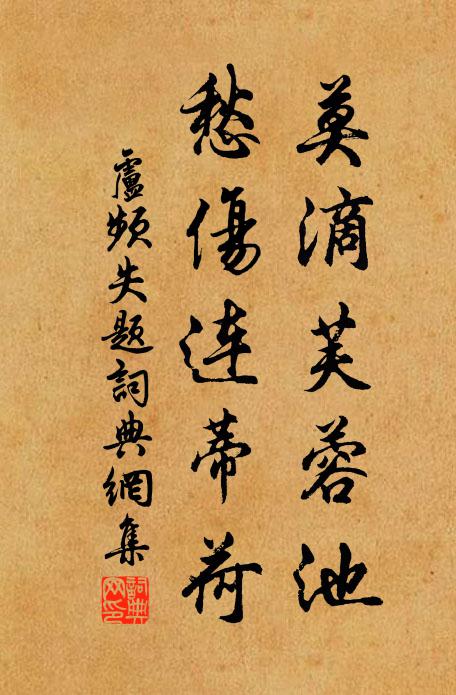 莫滴芙蓉池
愁傷連蒂荷
盧頻失題詞典網集
詞典
网印